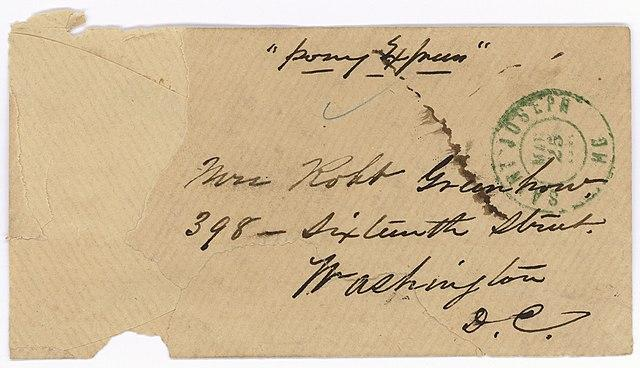 "Pony Express"
SAINT JOSEPH MO
MAR
25
Mrs Robt Greenhow.
398 — Sixteenth Street.
Washington
D.C.